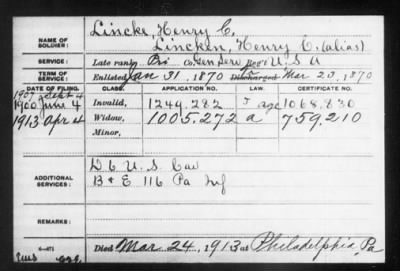 NAME OF SOLDIER: Lincke, Henry C.
Lincken, Henry C. (alias)
SERVICE: Late rank, Pri Co. Gen Serv Reg't U.S.A
TERM OF SERVICE: Enlisted Jan 31, 1870 Discharged Mar 23, 1870
DATE OF FILING. CLASS. APPLICATION NO. LAW. CERTIFICATE NO.
1907 Sept 4
1900 June 4 Invalid, 1249.282 age 1068,830
1913 Apr 4 Widow, 1005.272 a 759,210
Minor,
ADDITIONAL SERVICES: D 6 U.S. Cav
B & E 116 Pa Inf
REMARKS:
Died Mar. 24, 1913 at Philadelphia, Pa